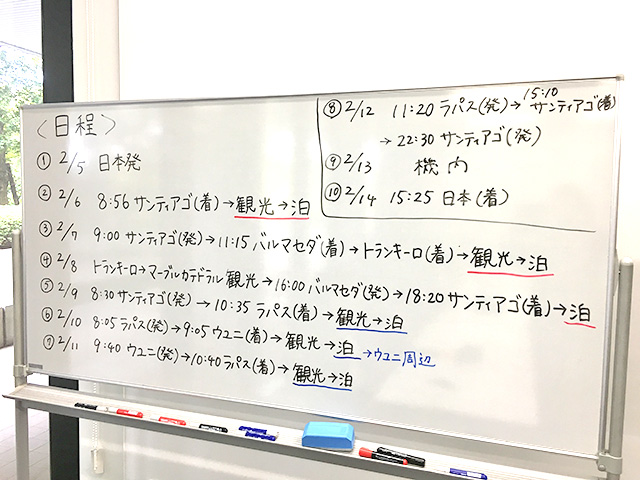 〈日程〉
① 2/5 日本発
② 2/6 8:56 サンティアゴ(着)→観光→泊
③ 2/7 9:00 サンティアゴ(発)→11:15 バルマセダ(着)→トランキーロ(着)→観光→泊
④ 2/8 トランキーロ→マーブルカテドラル観光→16:00 バルマセダ(発)→18:20 サンティアゴ(着)→泊
⑤ 2/9 8:30 サンティアゴ(発)→10:35 ラパス(着)→観光→泊
⑥ 2/10 8:05 ラパス(発)→9:05 ウユニ(着)→観光→泊→ウユニ周辺
⑦ 2/11 9:40 ウユニ(発)→10:40 ラパス(着)→観光→泊
⑧ 2/12 11:20 ラパス(発)→15:10 サンティアゴ(着)
→22:30 サンティアゴ(発)
⑨ 2/13 機内
⑩ 2/14 15:25 日本(着)